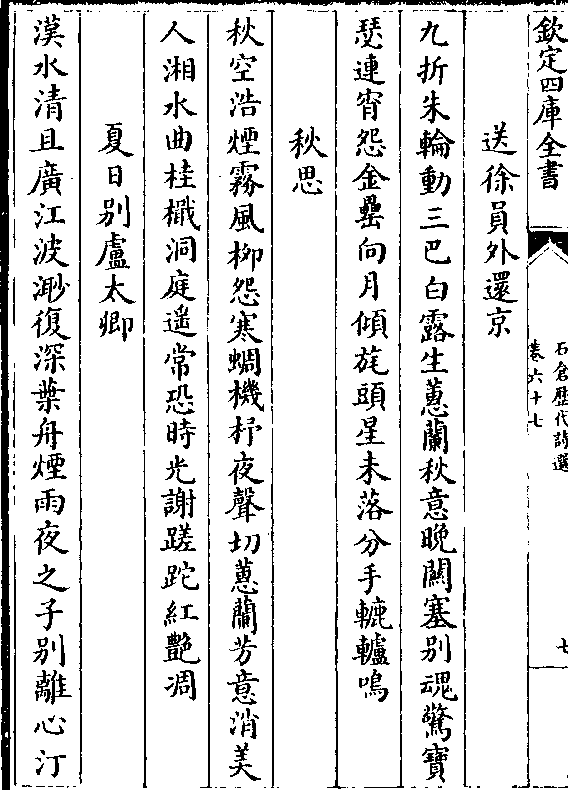 欽定四庫全書
石倉歷代詩選
卷六十七
七
送徐員外還京
九折朱輪動三巴白露生蕙蘭秋意晚關塞别魂驚寳
瑟連宵怨金罍向月傾旄頭星未落分手轆轤鳴
秋思
秋空浩煙霧風栁怨寒蜩機杼夜聲切蕙蘭芳意消美
人湘水曲桂檝洞庭遥常恐時光謝蹉跎紅艷凋
夏日别盧太卿
漢水清且廣江波渺復深葉舟煙雨夜之子别離心汀